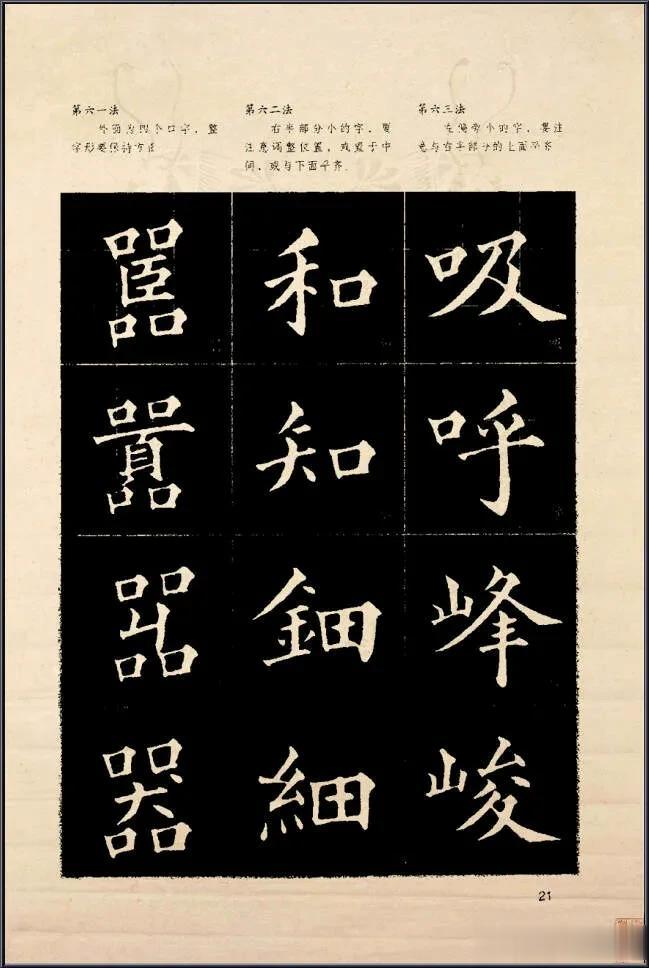 第六一法
外面为四个口字，整
字形要保持方正
第六二法
右半部分小的字，要
注意调整位置，或置于中
间，或与下面平齐.
第六三法
左偏旁小的字，要注
意与右半部分的上面平齐
嚚
囂
嘂
器
和
知
鈿
細
吸
呼
峰
峻
21